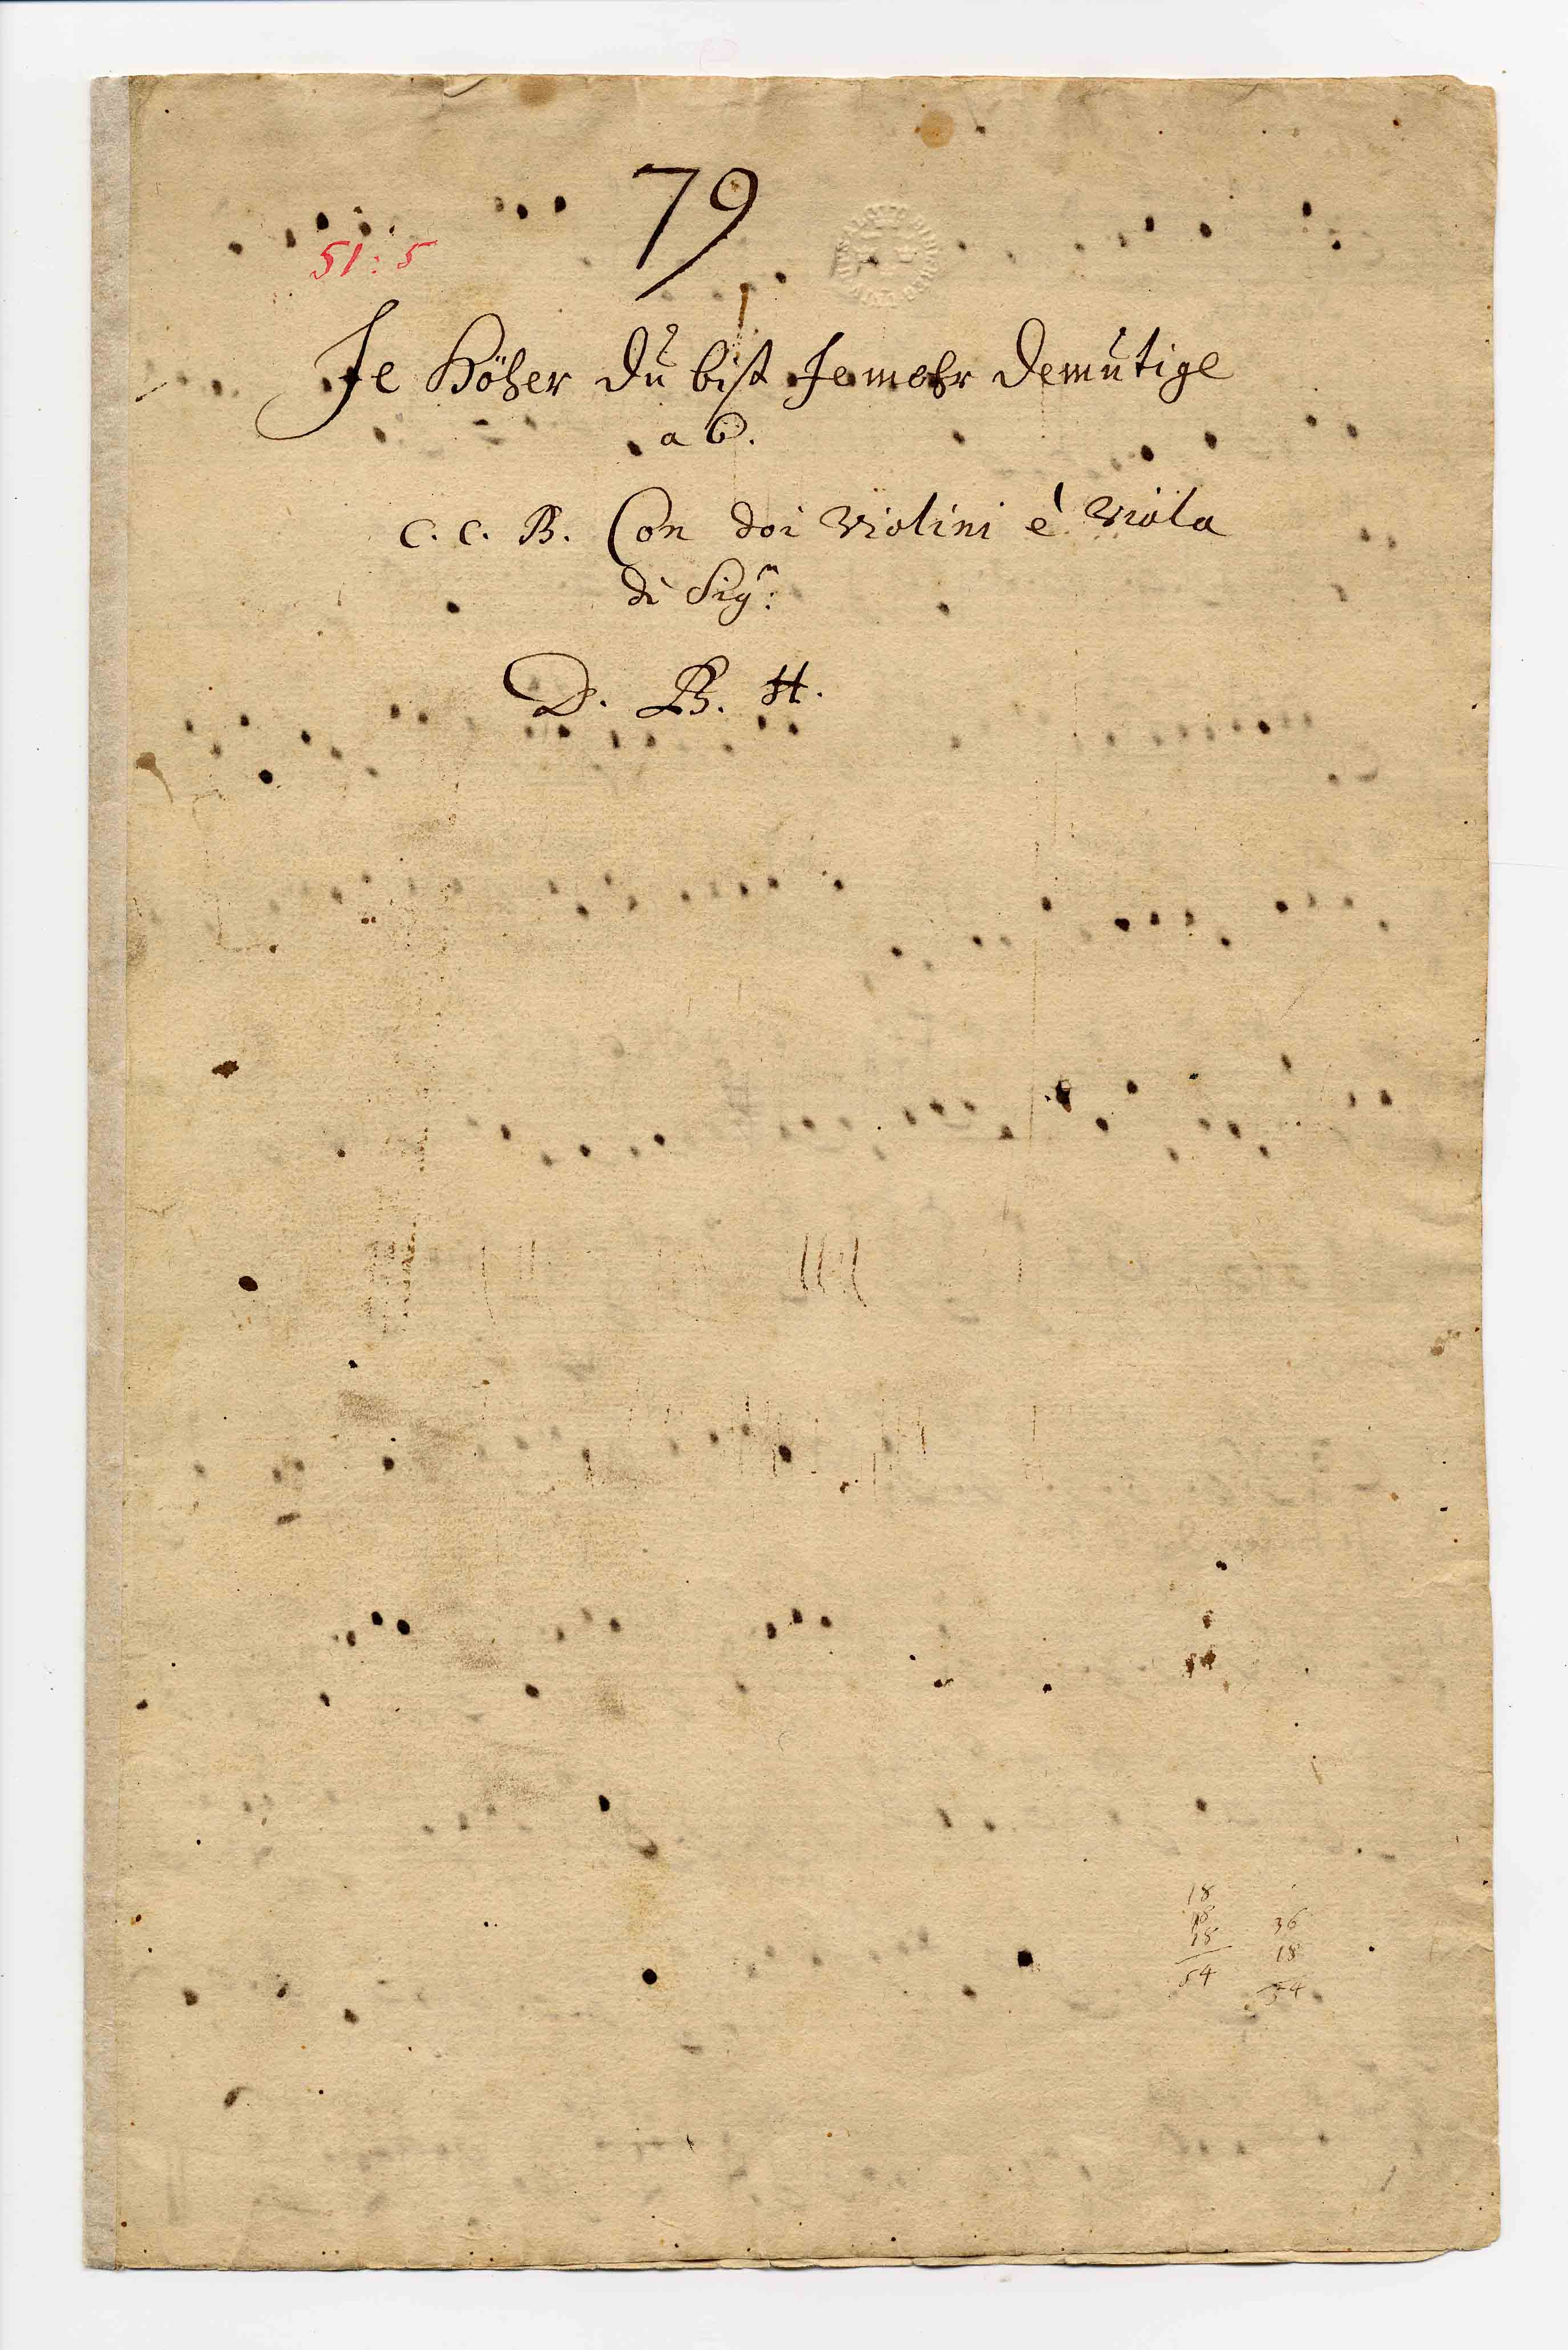 79
51: 5
Je Höher du bist Je mehr demutige
a 6.
C. C. B. Con doi Violini è Viola
di Sigr:
D. B. H.
18
18 36
18 18
54 54